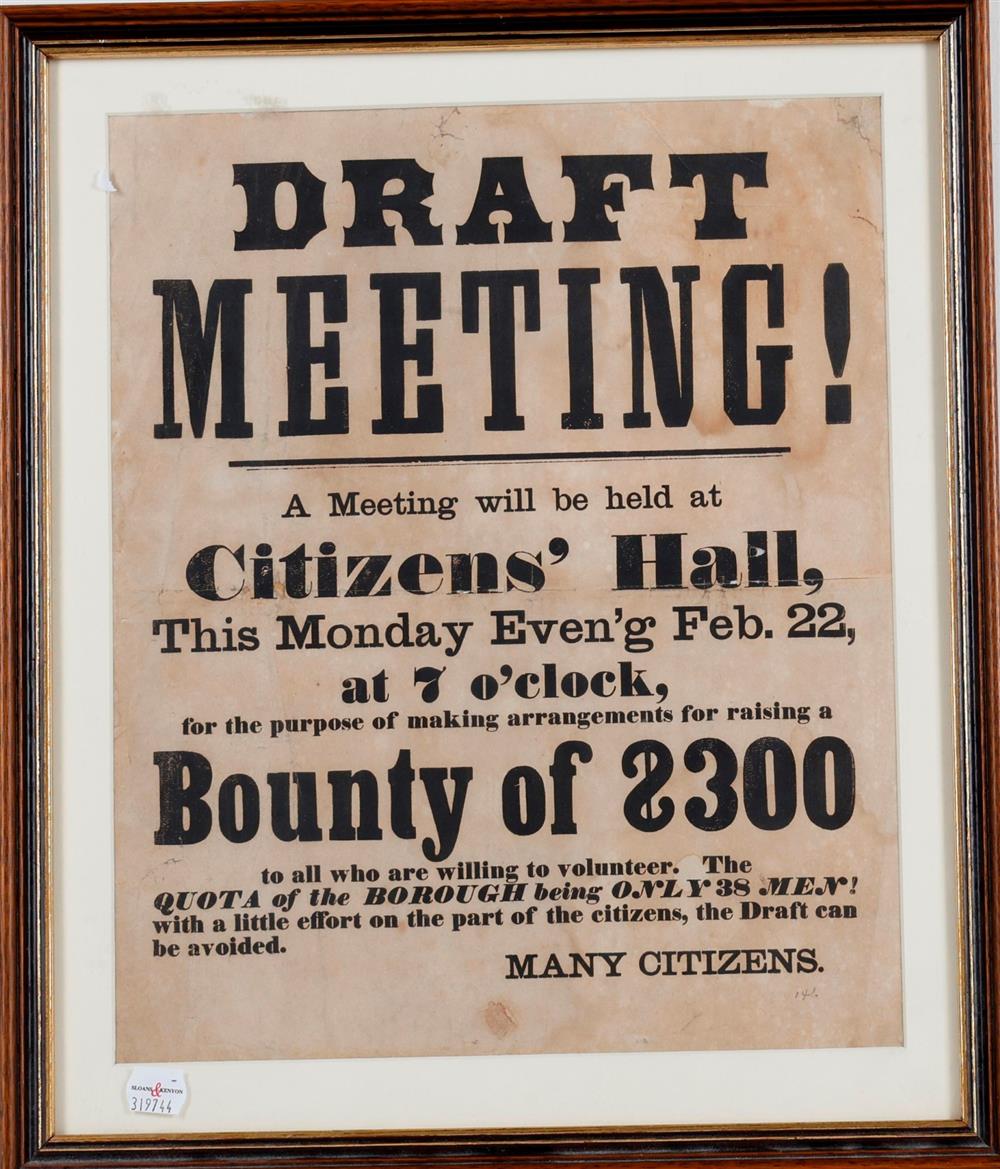 DRAFT
MEETING!
A Meeting will be held at
Citizens' Hall,
This Monday Even'g Feb. 22,
at 7 o'clock,
for the purpose of making arrangements for raising a
Bounty of $300
to all who are willing to volunteer. The
QUOTA of the BOROUGH being ONLY 38 MEN!
with a little effort on the part of the citizens, the Draft can
be avoided.
MANY CITIZENS.
SLOANS & KENYON
319744